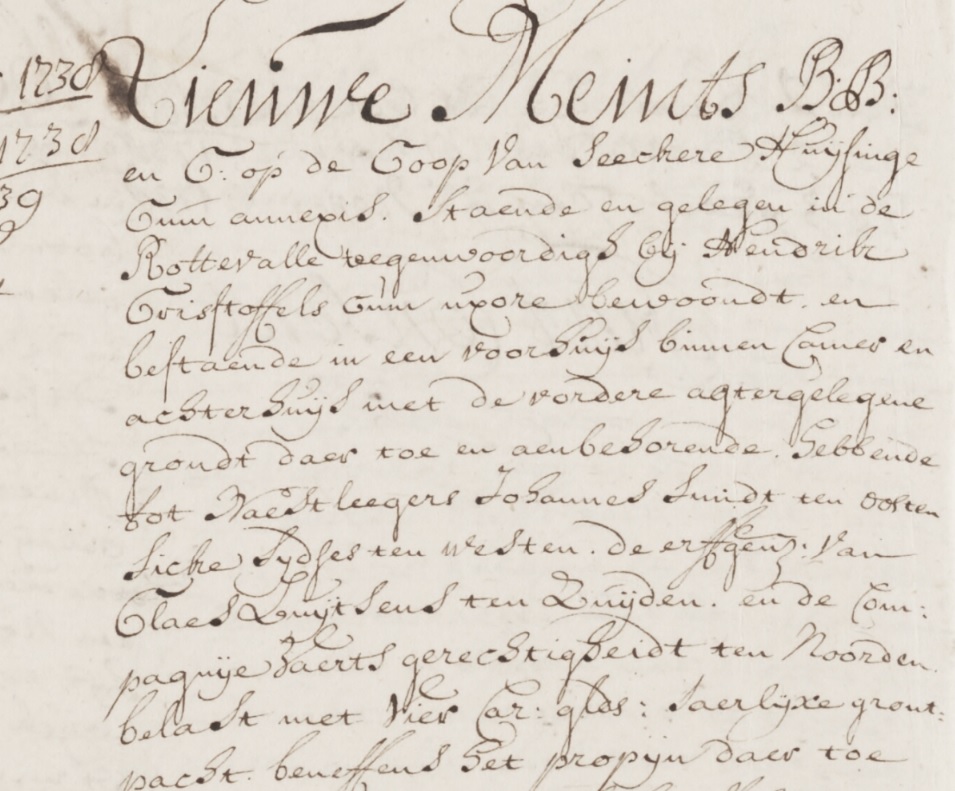 1738
1738
39
Nieuwe Meints B:B:
en G: op de Coop Van seeckere Huijsinge
Cum annexis. Staende en gelegen in de
Rottevalle teegenwoordigh bij Hendrik
Cristoffels Cum uxore bewoondt. en
bestaende in een voorhuijs binnen Camer en
achterhuijs met de vordere agtergelegene
grondt daer toe en aenbehorende. hebbende
tot Naestleegers Johannes Smidt ten oosten
Sicke Sydses ten westen. de erffgen: Van
Claes Luijtsens ten Zuijden. en de Com:
pagnije vaerts gerechtigheidt ten Noorden.
belast met Vier Car: glds: Jaerlijxe gront:
pacht. beneffens het propijn daer toe